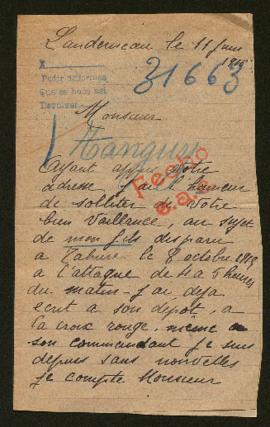 Landerneau le 11 Juin
1915
31663
Monsieur
Tanguy
Fecho
Ayant appris Votre
adresse j'ai l'honneur
de solliter de Votre
bien Vaillance, au sujet
de mon fils disparu
a Tahure le 8 octobre
a l'attaque de 4 a 5 heures
du matin - j'ai deja
ecrit a son depot, a
la croix rouge, meme a
son commandant je suis
depuis sans nouvelles
je compte Monsieur